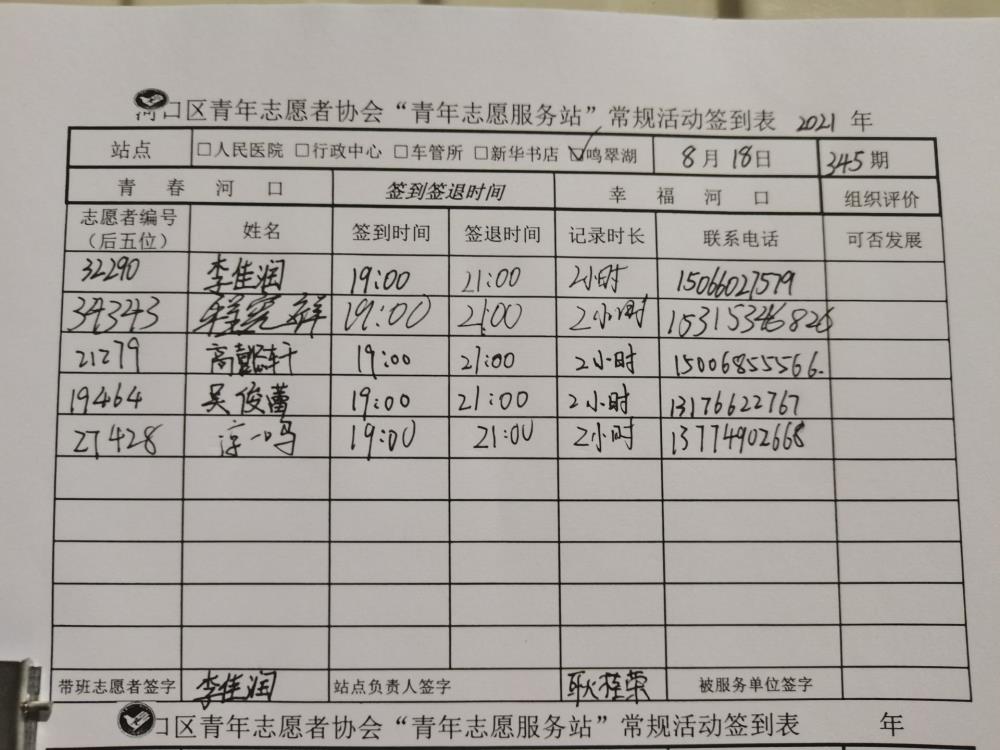 河口区青年志愿者协会“青年志愿服务站”常规活动签到表 2021 年
站点 □人民医院 □行政中心 □车管所 □新华书店 ☑鸣翠湖 8月18日 345期
青春河口 签到签退时间 幸福河口 组织评价
志愿者编号（后五位） 姓名 签到时间 签退时间 记录时长 联系电话 可否发展
32290 李佳润 19:00 21:00 2小时 15066027579
34343 19:00 21:00 2小时 15315346826
21279 高懿轩 19:00 21:00 2小时 15006855566
19464 吴俊蕾 19:00 21:00 2小时 13176622767
27428 一鸣 19:00 21:00 2小时 13774902668
带班志愿者签字 李佳润 站点负责人签字 耿桂荣 被服务单位签字
口区青年志愿者协会“青年志愿服务站”常规活动签到表 年